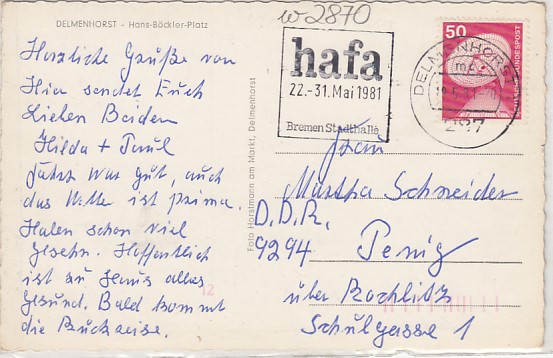 DELMENHORST - Hans-Böckler-Platz
Herzliche Grüße von
Hier sendet Euch
Lieben Beiden
Hilda + Paul
Fahrt war gut, auch
das Wetter ist prima.
Haben schon viel
gesehn. Hoffentlich
ist zu Haus alles
gesund. Bald kommt
die Rückreise.
Foto Horstmann am Markt, Delmenhorst
W 2870
hafa
22.-31. Mai 1981
Bremen Stadthalle
DELMENHORST
287
50
DEUTSCHE BUNDESPOST
Frau
Martha Schneider
D.D.R.
9294 Penig
über Rochlitz
Schulgasse 1
12